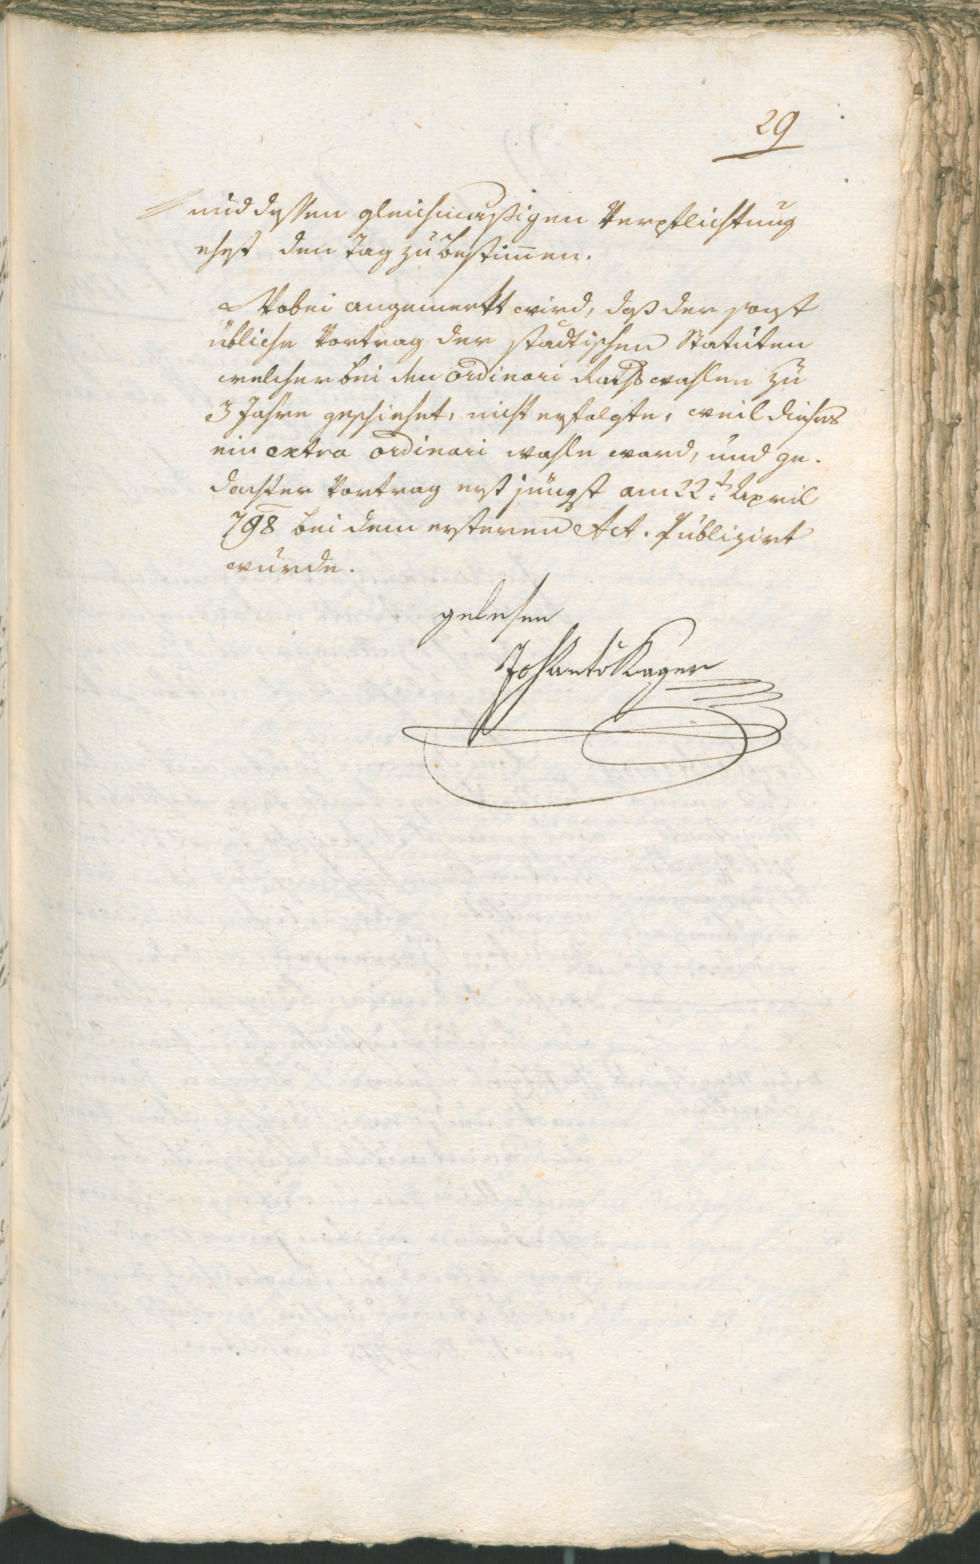 29
und dessen gleichmäßigen Verpflichtung
ehest den Tag zu bestim̅en.
Wobei angemerkt wird, daß der sonst
übliche Vortrag der städtischen Statuten
welcher bei den ordinari Rathswahlen zu
3 Jahre geschiehet, nicht erfolgte, weil dieses
ein extra ordinari wahle ward, und ge-
dachter Vortrag erst jüngst am 22t. April
798 bei dem ersteren Act. Publizirt
wurde.
gelesen
Joh Anto Kager